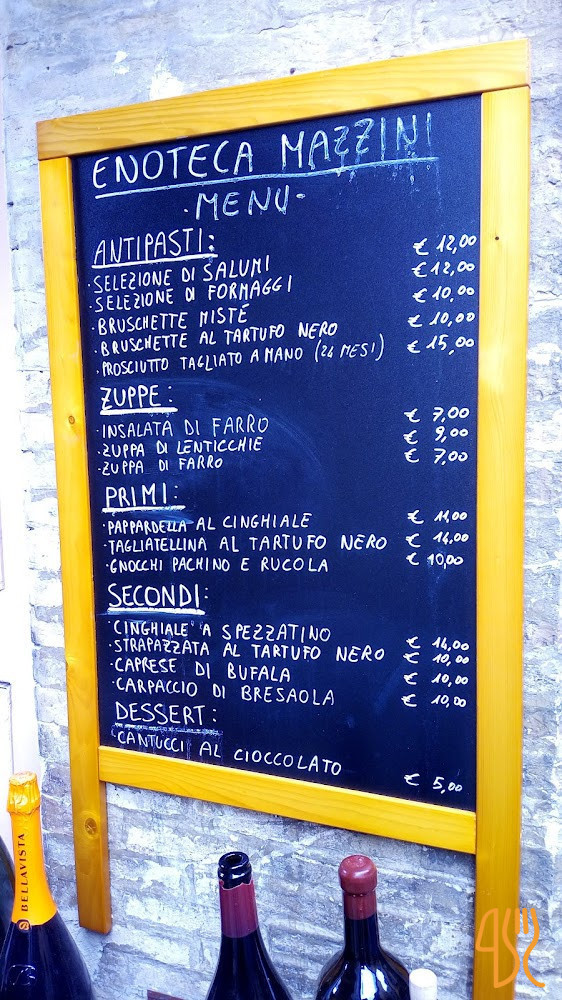 ENOTECA MAZZINI
·MENU·
ANTIPASTI:
·SELEZIONE DI SALUMI € 12,00
·SELEZIONE DI FORMAGGI € 12,00
·BRUSCHETTE MISTE € 10,00
·BRUSCHETTE AL TARTUFO NERO € 10,00
·PROSCIUTTO TAGLIATO A MANO (24 MESI) € 15,00
ZUPPE:
·INSALATA DI FARRO € 7,00
·ZUPPA DI LENTICCHIE € 9,00
·ZUPPA DI FARRO € 7,00
PRIMI:
·PAPPARDELLA AL CINGHIALE € 11,00
·TAGLIATELLINA AL TARTUFO NERO € 14,00
·GNOCCHI PACHINO E RUCOLA € 10,00
SECONDI:
·CINGHIALE A SPEZZATINO € 14,00
·STRAPAZZATA AL TARTUFO NERO € 10,00
·CAPRESE DI BUFALA € 10,00
·CARPACCIO DI BRESAOLA € 10,00
DESSERT:
·CANTUCCI AL CIOCCOLATO € 5,00
BELLAVISTA